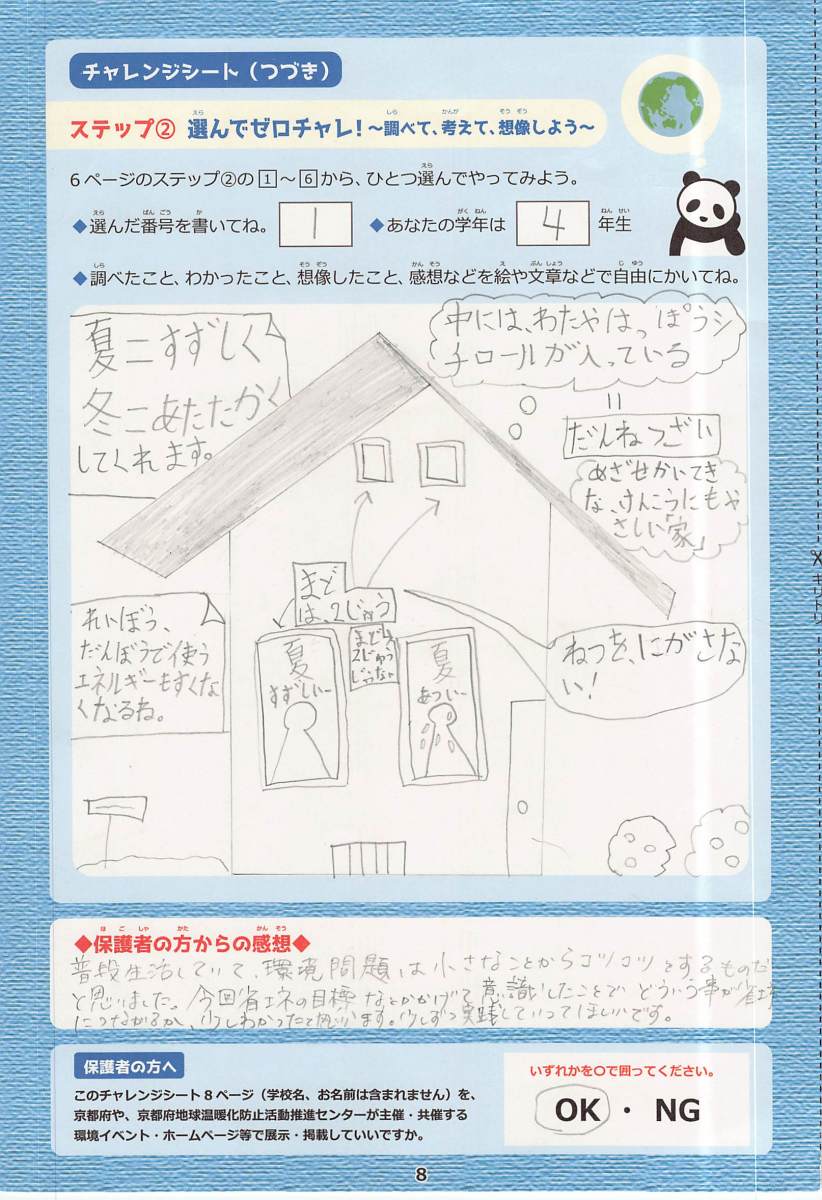 チャレンジシート（つづき）
ステップ② 選んでゼロチャレ！～調べて、考えて、想像しよう～
6ページのステップ②の1～6から、ひとつ選んでやってみよう。
◆選んだ番号を書いてね。 1 ◆あなたの学年は 4 年生
◆調べたこと、わかったこと、想像したこと、感想などを絵や文章などで自由にかいてね。
夏ニすずしく
冬ニあたたかく
してくれます。
中には、わたやはっぽうシ
チロールが入っている
＝
だんねつざい
めざせかいてき
な、けんこうにもや
さしい「家」
まど
は、2じゅう
れいぼう、
だんぼうで使う
エネルギーもすくな
くなるね。
夏
すずしいー
まども
2じゅう
じゃな
夏
あついー
ねつを、にがさな
い！
◆保護者の方からの感想◆
普段生活していて、環境問題は小さなことからコツコツとするものだ
と思いました。今回省エネの目標などかかげて意識したことでどういう事が省エネ
につながるか、少しわかったと思います。少しずつ実践していってほしいです。
保護者の方へ
このチャレンジシート8ページ（学校名、お名前は含まれません）を、
京都府や、京都府地球温暖化防止活動推進センターが主催・共催する
環境イベント・ホームページ等で展示・掲載していいですか。
いずれかを〇で囲ってください。
OK ・ NG
キリトリ
8